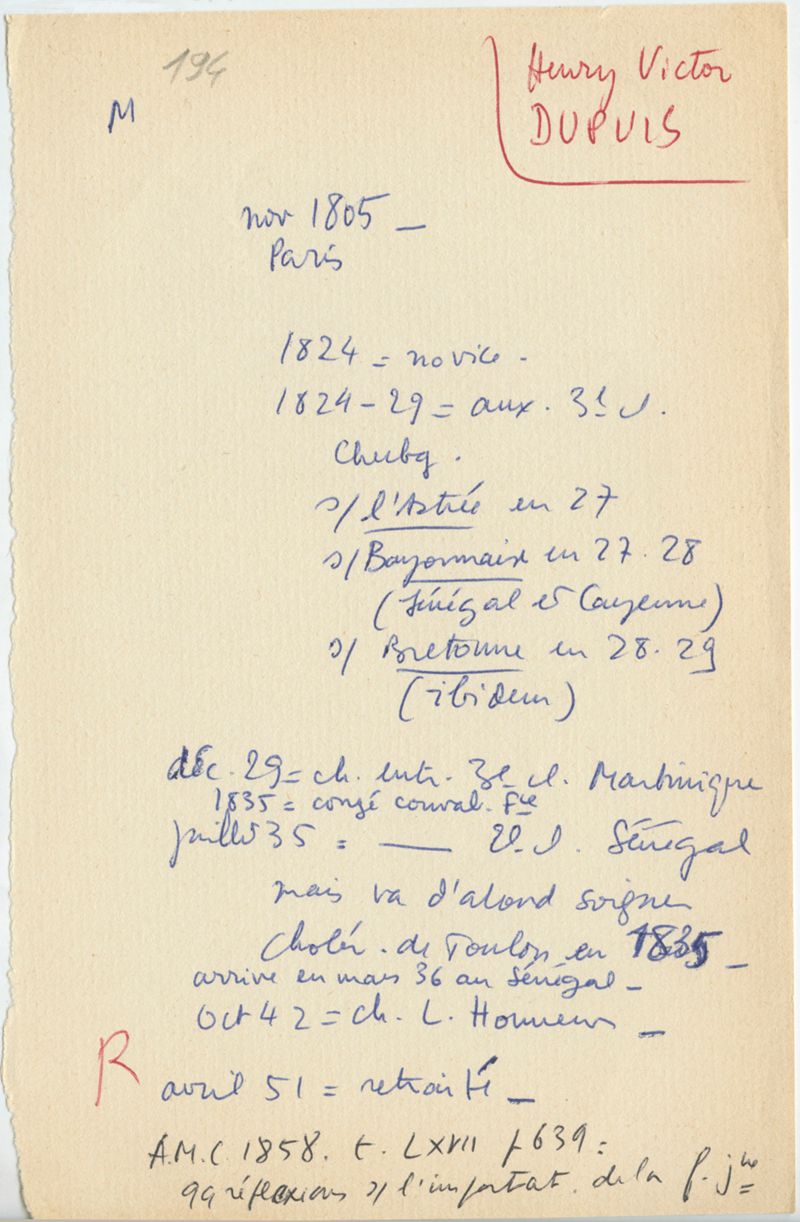 194
M
Henry Victor
DUPUIS
nov 1805 –
Paris
1824 = novice -
1824 - 29 = aux. 3e cl.
Chubg.
s/ l'Astrée en 27
s/ Bayonnaise en 27. 28
(Sénégal et Cayenne)
s/ Bretonne en 28. 29
(ibidem)
déc. 29 = ch. entr. 3e cl. Martinique
1835 = congé conval. Fce
juillet 35 = —— 2e cl. Sénégal
mais va d'abord soigner
cholér. de Toulon en 1835 –
arrive en mars 36 au Sénégal –
Oct 42 = ch. L. Honneur –
R
avril 51 = retraité –
A.M.C 1858. t. LXVII p 639 =
qq réflexions s/ l'importat. de la f. jne